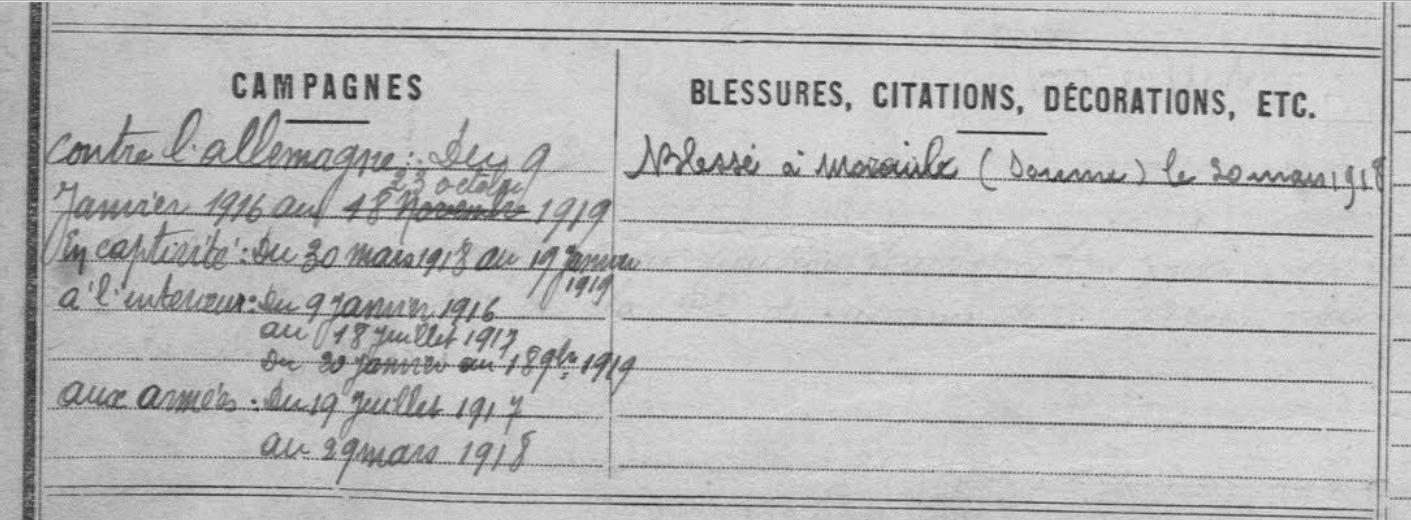 CAMPAGNES
contre l'allemagne: Du 9
23 octobre
Janvier 1916 au 18 Novembre 1919
En captivité: Du 30 mars 1918 au 19 Janvier
1919
à l'interieur: Du 9 Janvier 1916
au 18 Juillet 1917
Du 20 Janvier au 18 9bre 1919
aux armées: Du 19 Juillet 1917
au 29 mars 1918
BLESSURES, CITATIONS, DÉCORATIONS, ETC.
Blessé à (Somme) le mars 1918